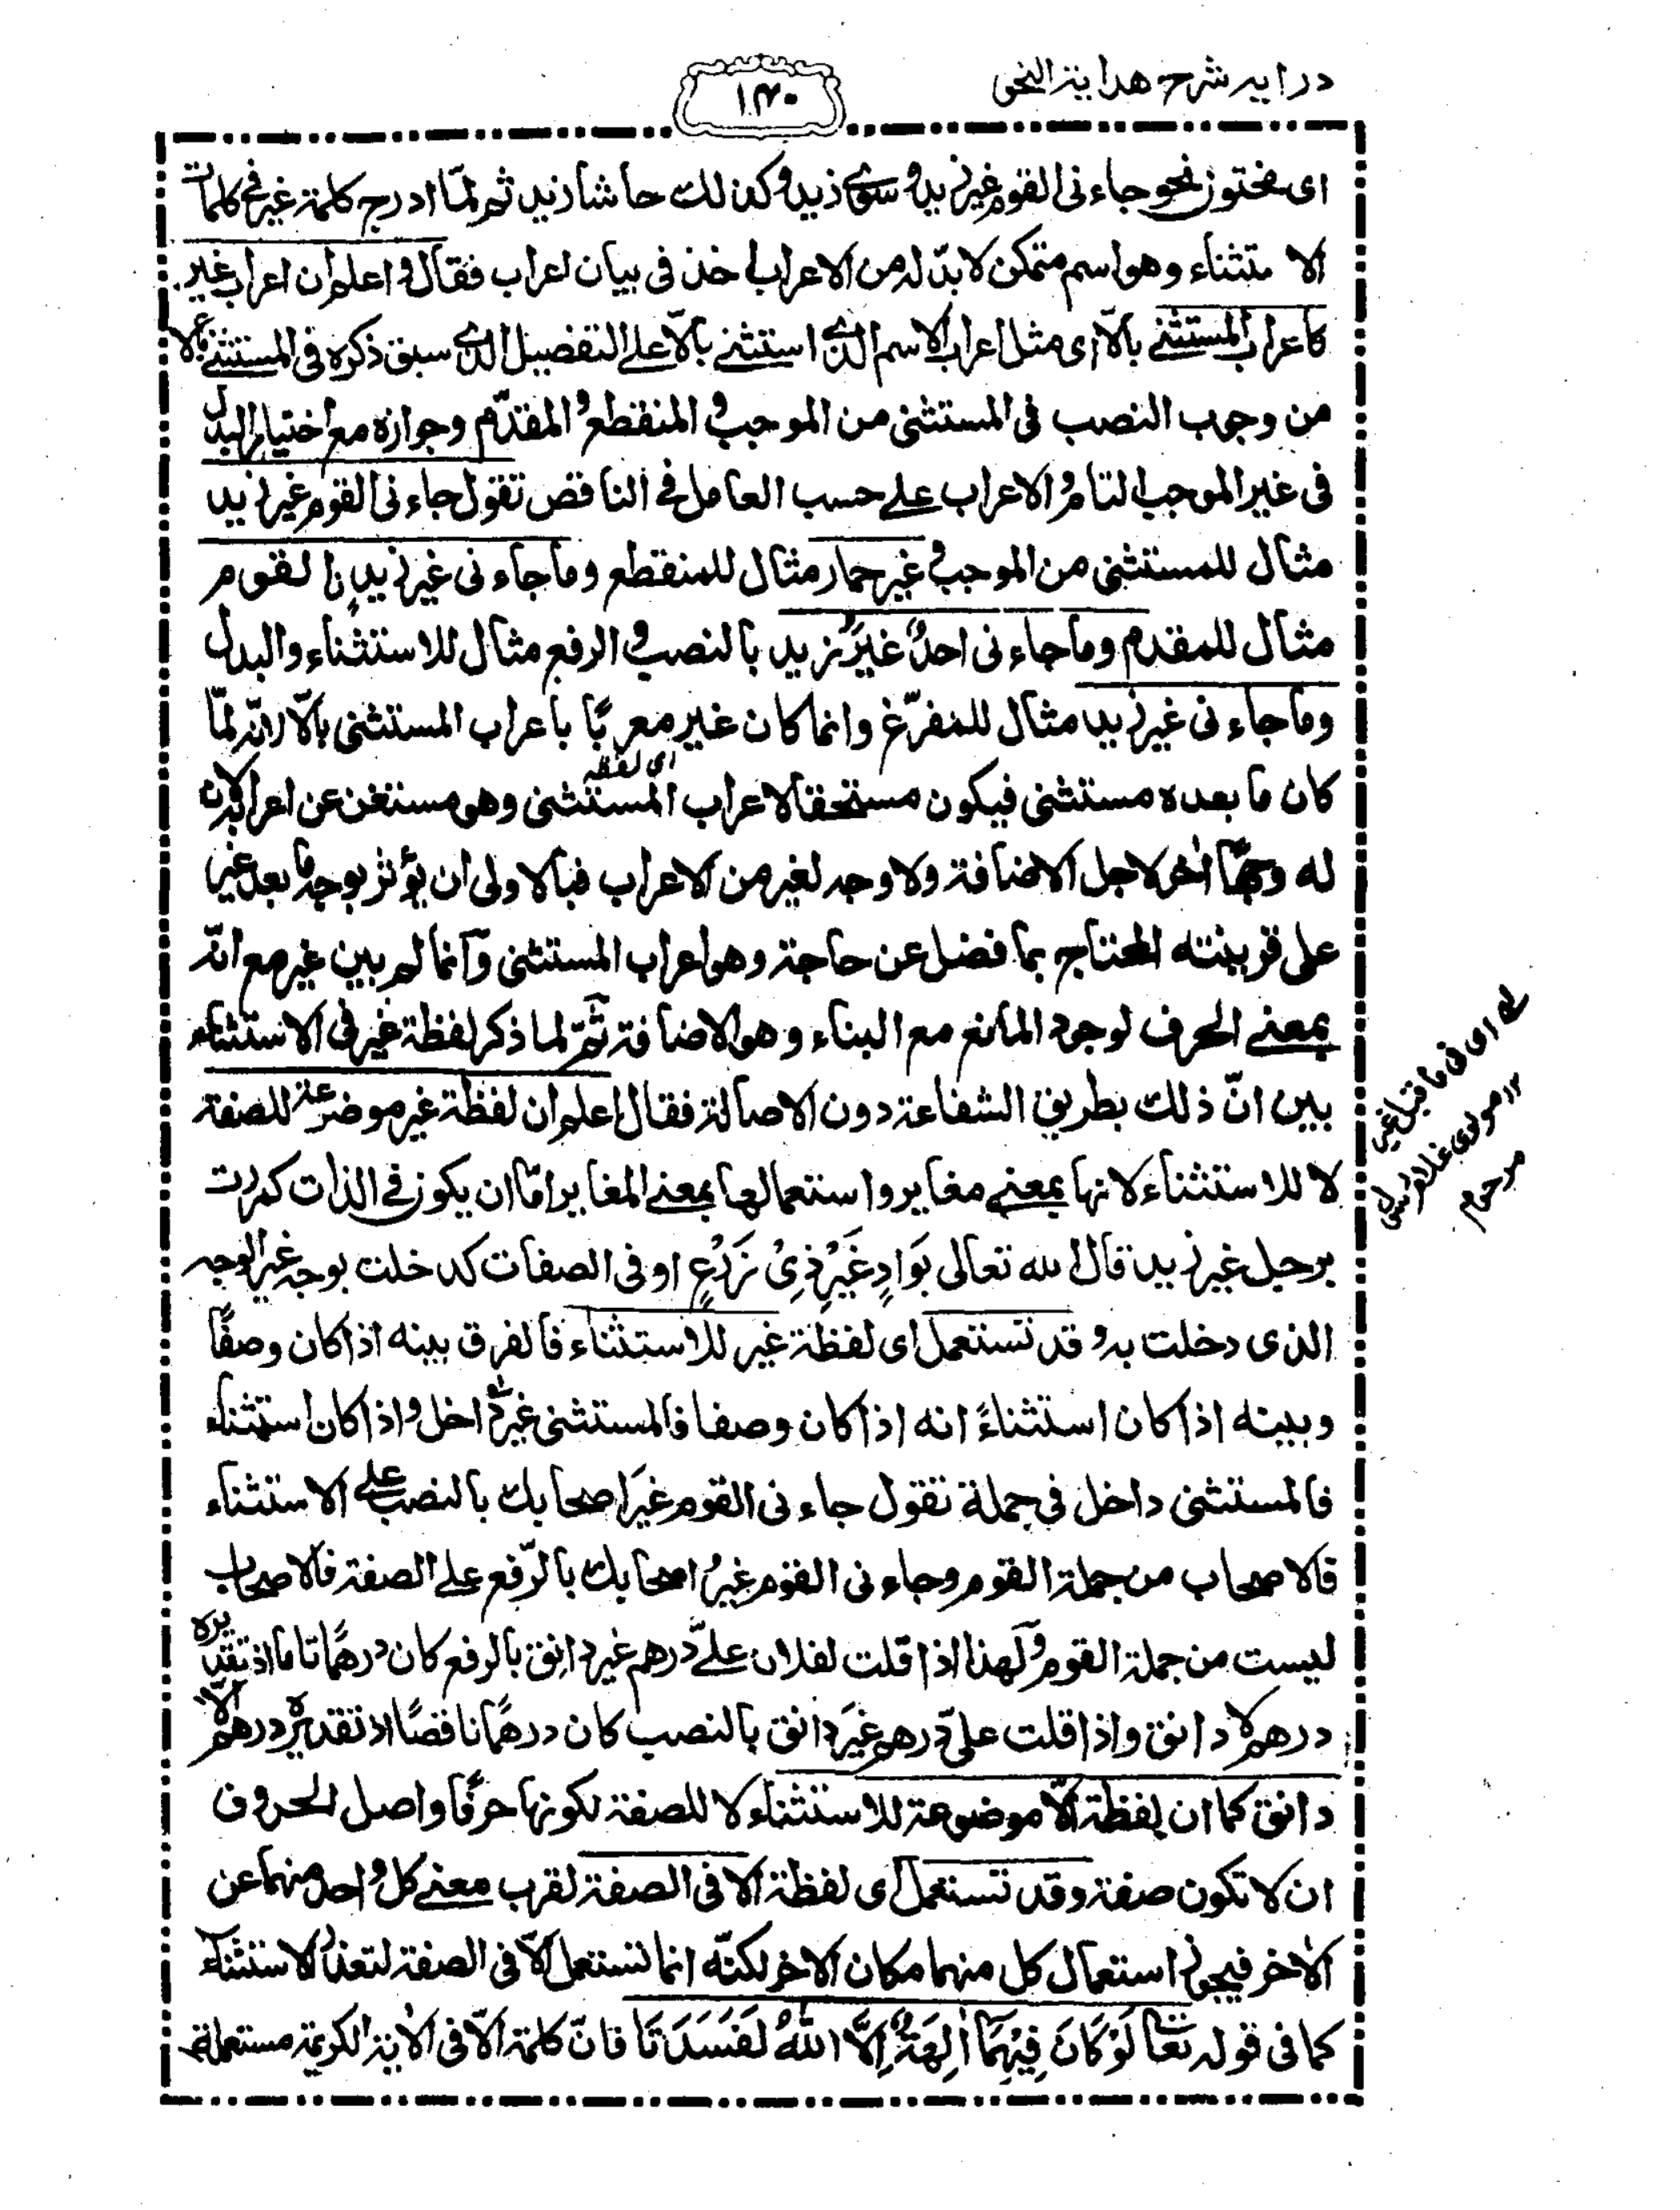 درايه شرح هداية النحو
١٤٠
اى مختوز نحو جاءنى القوم غير زيد وسوى زيد وكذلك حاشا زيد ثم لمّا ادرج كلمة غير فى كلمات
الاستثناء وهو اسم متمكن لابدّ له من الاعراب اخذ فى بيان اعراب فقال واعلم ان اعراب غير
كاعراب المستثنى بالّا اى مثل اعراب الاسم الذى استثنى بالّا على التفصيل الذى سبق ذكره فى المستثنى بالا
من وجوب النصب فى المستثنى من الموجب و المنقطع و المقدّم وجوازه مع اختيار البدل
فى غير الموجب التام و الاعراب على حسب العامل فى الناقص تقول جاءنى القوم غير زيد
مثال للمستثنى من الموجب و غير حمار مثال للمنقطع وما جاءنى غير زيد ن القوم
مثال للمقدم وما جاءنى احدٌ غيرُ زيد بالنصب و الرفع مثال للاستثناء والبدل
وما جاءنى غير زيد مثال للمفرّغ وانما كان غير معربًا باعراب المستثنى بالّا لانّه لمّا
كان ما بعده مستثنى فيكون مستحقا لاعراب المستثنى وهو مستغن عن اعراب لان
اى لفظه
له وجهًا اٰخر لاجل الاضافة ولا وجه لغير من الاعراب فبالاولى ان يؤثر بوجه ما بعد غير
على قرينته المحتاج بما فضل عن حاجة وهو اعراب المستثنى وانما لم يبين غير مع انّه
بمعنى الحرف لوجود المانع مع البناء وهو الاضافة ثمّ لما ذكر لفظة غير فى الاستثناء
بين انّ ذلك بطريق الشفاعة دون الاصالة فقال اعلم ان لفظة غير موضوعة للصفة
لا للاستثناء لانها بمعنى مغاير واستعمالها بمعنى المغاير امّا ان يكون فى الذات كمررت
برجل غير زيد قال الله تعالى بَوَادٍ غَيْرِ ذِىْ زَرْعٍ او فى الصفات كدخلت بوجه غير الوجه
الذى دخلت به و قد تستعمل اى لفظة غير للاستثناء فالفرق بينه اذا كان وصفًا
وبينه اذا كان استثناءً انه اذا كان وصفا فالمستثنى غير داخل و اذا كان استثناء
فالمستثنى داخل فى جملة تقول جاءنى القوم غيرَ اصحابك بالنصب على الاستثناء
فالاصحاب من جملة القوم وجاءنى القوم غيرُ اصحابك بالرّفع على الصفة فالاصحاب
ليست من جملة القوم ولهذا اذا قلت لفلان علىّ درهم غير دانق بالرفع كان درهمًا تاما اذ تقديره
درهم لا دانق واذا قلت علىّ درهم غيرَ دانق بالنصب كان درهمًا ناقصًا اذ تقديره درهم الّا
دانق كما ان لفظة الّا موضوعة للاستثناء لا للصفة لكونها حرفًا واصل الحروف
ان لا تكون صفة وقد تستعمل اى لفظة الا فى الصفة لقرب معنى كل واحد منهما عن
الاٰخر فيجوز استعمال كل منهما مكان الاٰخر لكنّه انما تستعمل الّا فى الصفة لتعذر الاستثناء
كما فى قوله تعالى لَوْ كَانَ فِيْهِمَا اٰلِهَةٌ اِلَّا اللهُ لَفَسَدَتَا فانّ كلمة الّا فى الاٰية الكريمة مستعملة
اى فى ما قبل غير
١٢ مولوى غلام
مرحوم